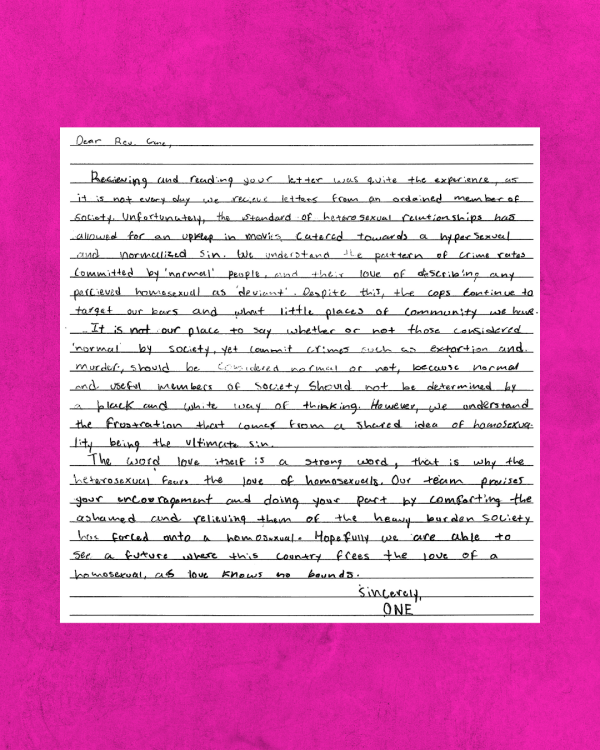 Dear Rev. Gene,
Recieving and reading your letter was quite the experience, as
it is not every day we recieve letters from an ordained member of
society. Unfortunately, the standard of heterosexual reuationships has
allowed for an upkeep in movies catered towards a hypersexual
and normalized sin. We understand the pattern of crime rates
committed by 'normal' people, and their love of describing any
percieved homosexual as 'deviant'. Despite this, the cops continue to
target our bars and what little places of community we have.
It is not our place to say whether or not those considered
'normal' by society, yet commit crimes such as extortion and
murder, should be considered normal or not, because normal
and useful members of society should not be determined by
a black and white way of thinking. However, we understand
the frustration that comes from a shared idea of homosexua-
lity being the ultimate sin.
The word love itself is a strong word, that is why the
heterosexual fears the love of homosexuals. Our team praises
your encouragement and doing your part by comforting the
ashamed and relieving them of the heavy burden society
has forced onto a homosexual. Hopefully we are able to
see a future where this country frees the love of a
homosexual, as love knows no bounds.
Sincerely,
ONE